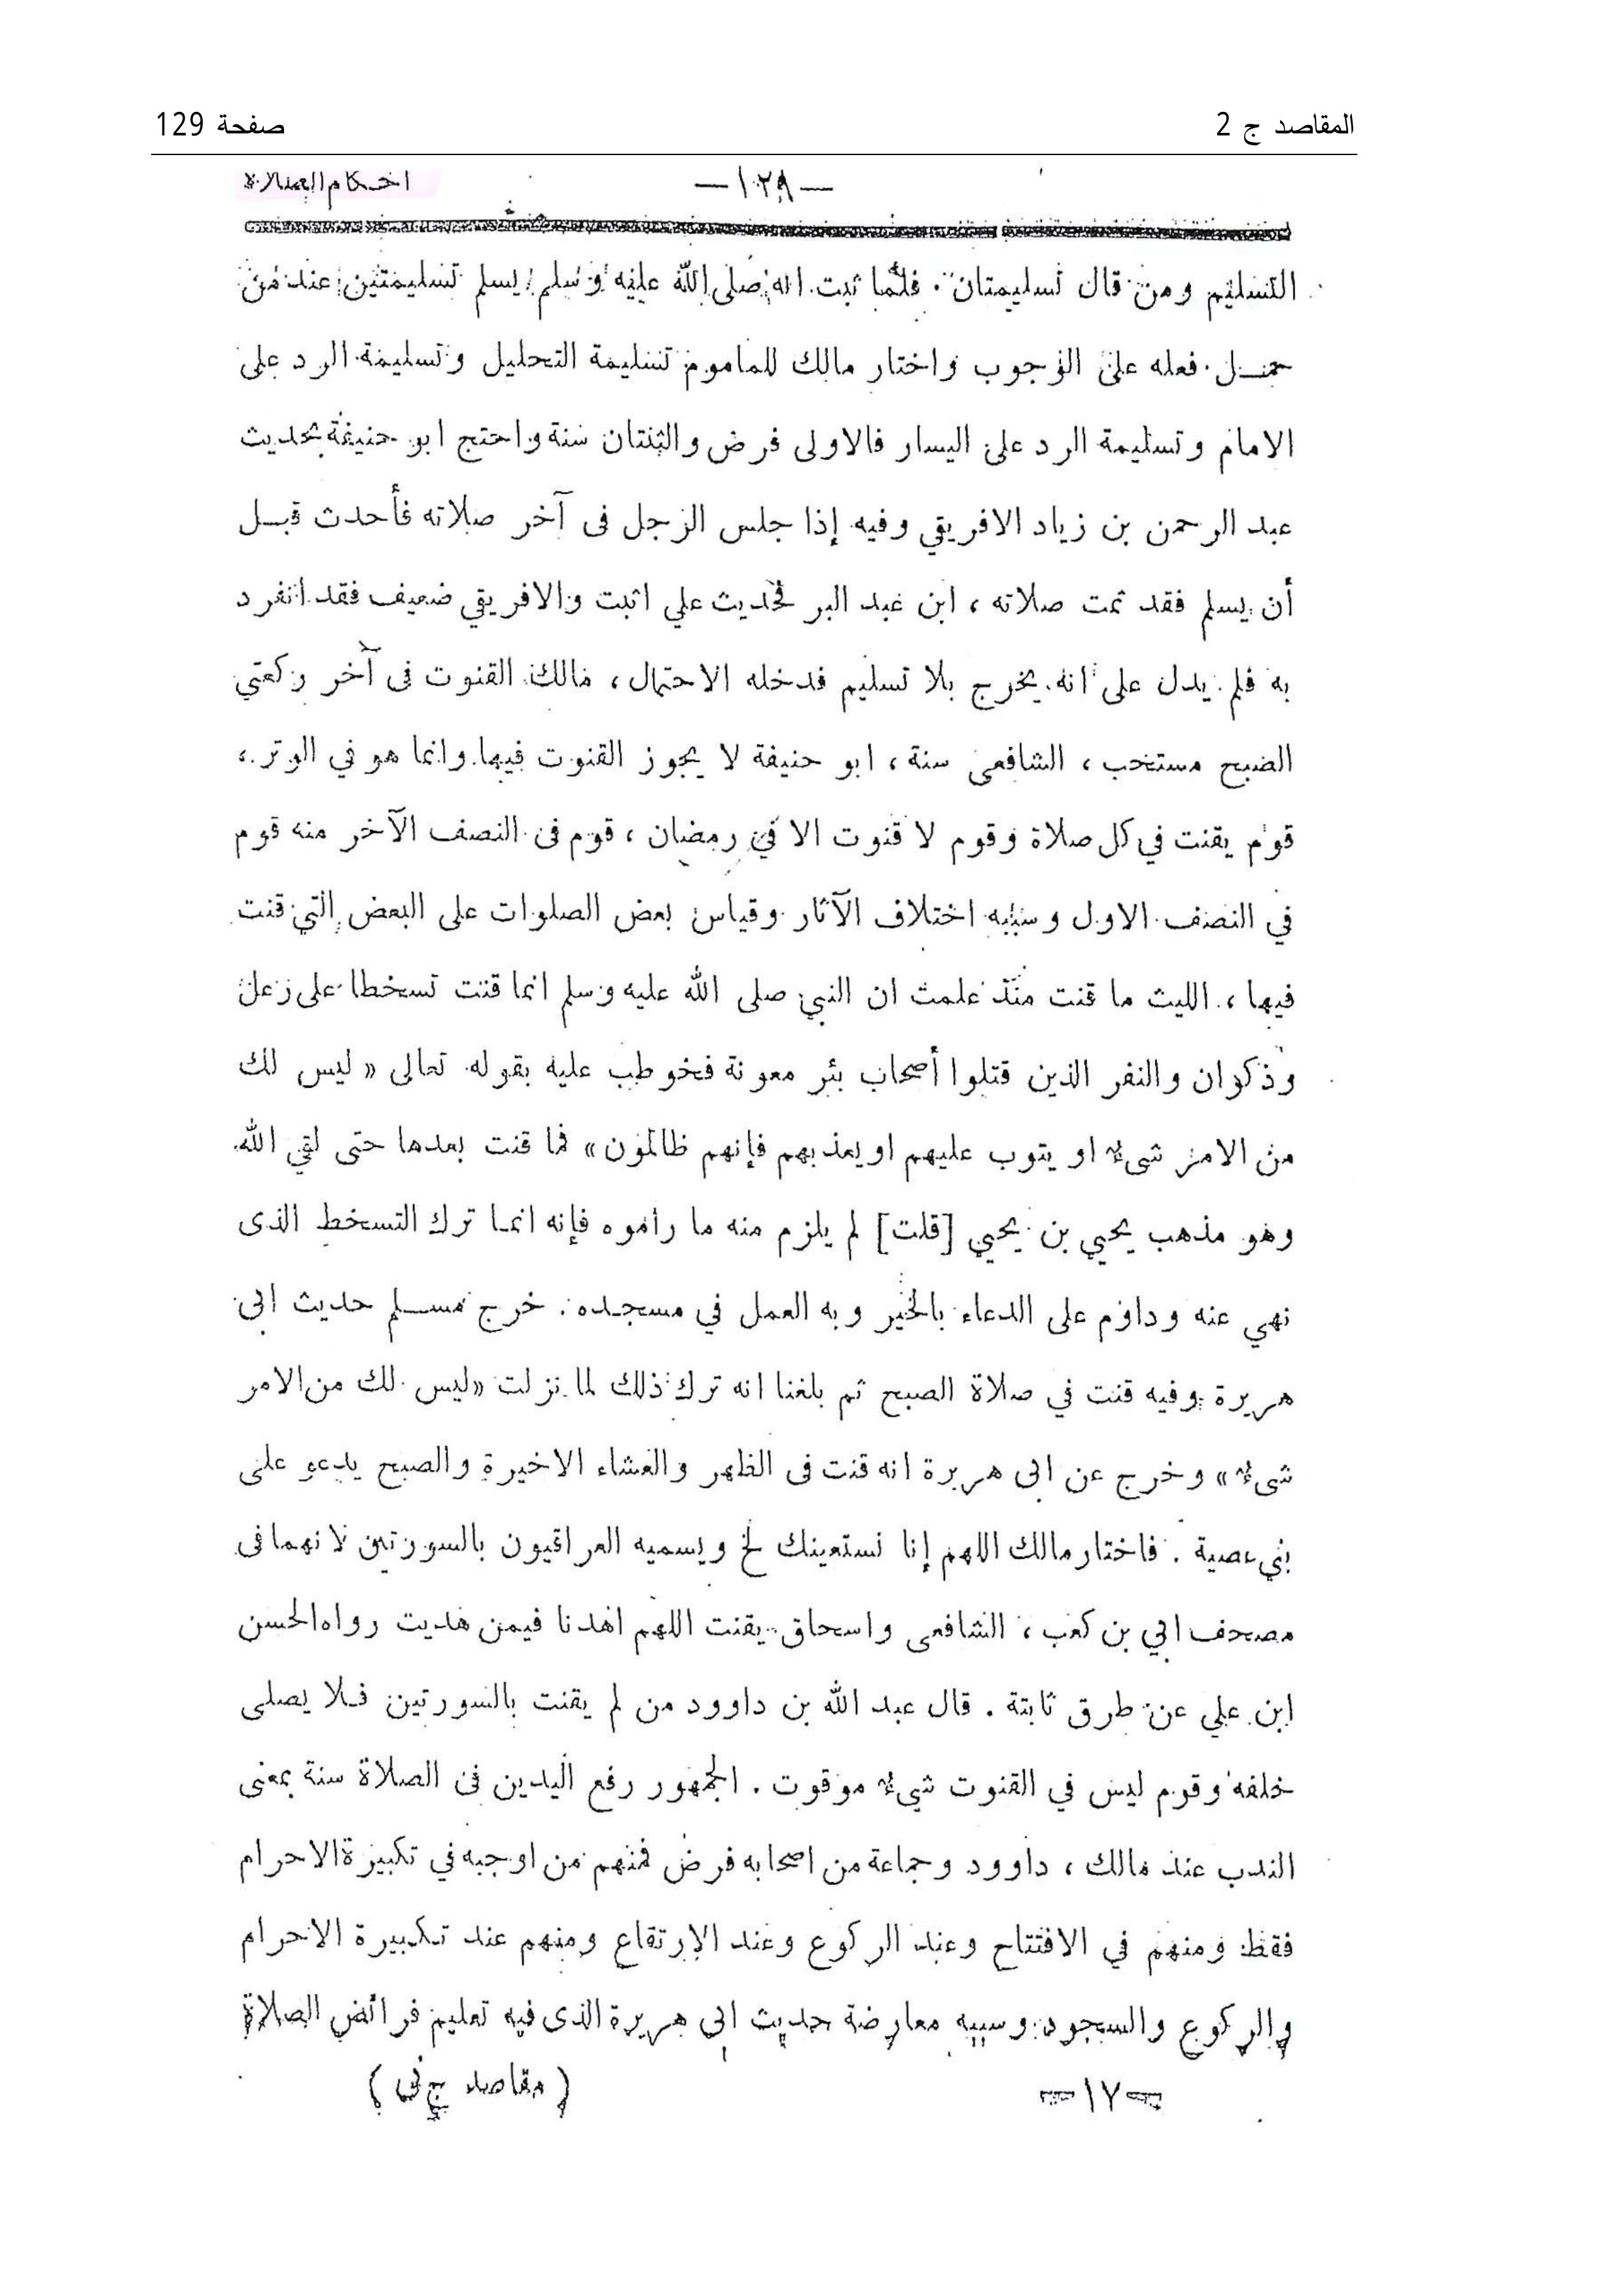 المقاصد ج 2
صفحة 129
احكام الصلاة
— ١٢٩ —
التسليم ومن قال تسليمتان . فلما ثبت انه صلى الله عليه وسلم يسلم تسليمتين عند من
حمل فعله على الوجوب واختار مالك للماموم تسليمة التحليل وتسليمة الرد على
الامام وتسليمة الرد على اليسار فالاولى فرض والثنتان سنة واحتج ابو حنيفة بحديث
عبد الرحمن بن زياد الافريقي وفيه إذا جلس الرجل فى آخر صلاته فأحدث قبل
أن يسلم فقد تمت صلاته ، ابن عبد البر فحديث علي اثبت والافريقي ضعيف فقد انفرد
به فلم يدل على انه يخرج بلا تسليم فدخله الاحتمال ، مالك القنوت فى آخر ركعتي
الصبح مستحب ، الشافعى سنة ، ابو حنيفة لا يجوز القنوت فيها وانما هو في الوتر ،
قوم يقنت في كل صلاة وقوم لا قنوت الا في رمضان ، قوم فى النصف الآخر منه قوم
في النصف الاول وسببه اختلاف الآثار وقياس بعض الصلوات على البعض التي قنت
فيها ، الليث ما قنت منذ علمت ان النبي صلى الله عليه وسلم انما قنت تسخطا على رعل
وذكوان والنفر الذين قتلوا أصحاب بئر معونة فخوطب عليه بقوله تعالى « ليس لك
من الامر شىء او يتوب عليهم او يعذبهم فإنهم ظالمون » فما قنت بعدها حتى لقي الله
وهو مذهب يحيي بن يحيي [قلت] لم يلزم منه ما راموه فإنه انما ترك التسخط الذى
نهي عنه وداوم على الدعاء بالخير وبه العمل في مسجده . خرج مسلم حديث ابى
هريرة وفيه قنت في صلاة الصبح ثم بلغنا انه ترك ذلك لما نزلت «ليس لك من الامر
شىء » وخرج عن ابى هريرة انه قنت فى الظهر والعشاء الاخيرة والصبح يدعو على
بني عصية . فاختار مالك اللهم إنا نستعينك لخ ويسميه العراقيون بالسورتين لانهما فى
مصحف ابي بن كعب ، الشافعى واسحاق يقنت اللهم اهدنا فيمن هديت رواه الحسن
ابن علي عن طرق ثابتة . قال عبد الله بن داوود من لم يقنت بالسورتين فلا يصلى
خلفه وقوم ليس في القنوت شيء موقوت . الجمهور رفع اليدين فى الصلاة سنة بمعنى
الندب عند مالك ، داوود وجماعة من اصحابه فرض فمنهم من اوجبه في تكبيرة الاحرام
فقط ومنهم في الافتتاح وعند الركوع وعند الإرتقاع ومنهم عند تكبيرة الاحرام
والركوع والسجود وسببه معارضة حديث ابى هريرة الذى فيه تعليم فرائض الصلاة
— ١٧ —
( مقاصد ج نى )